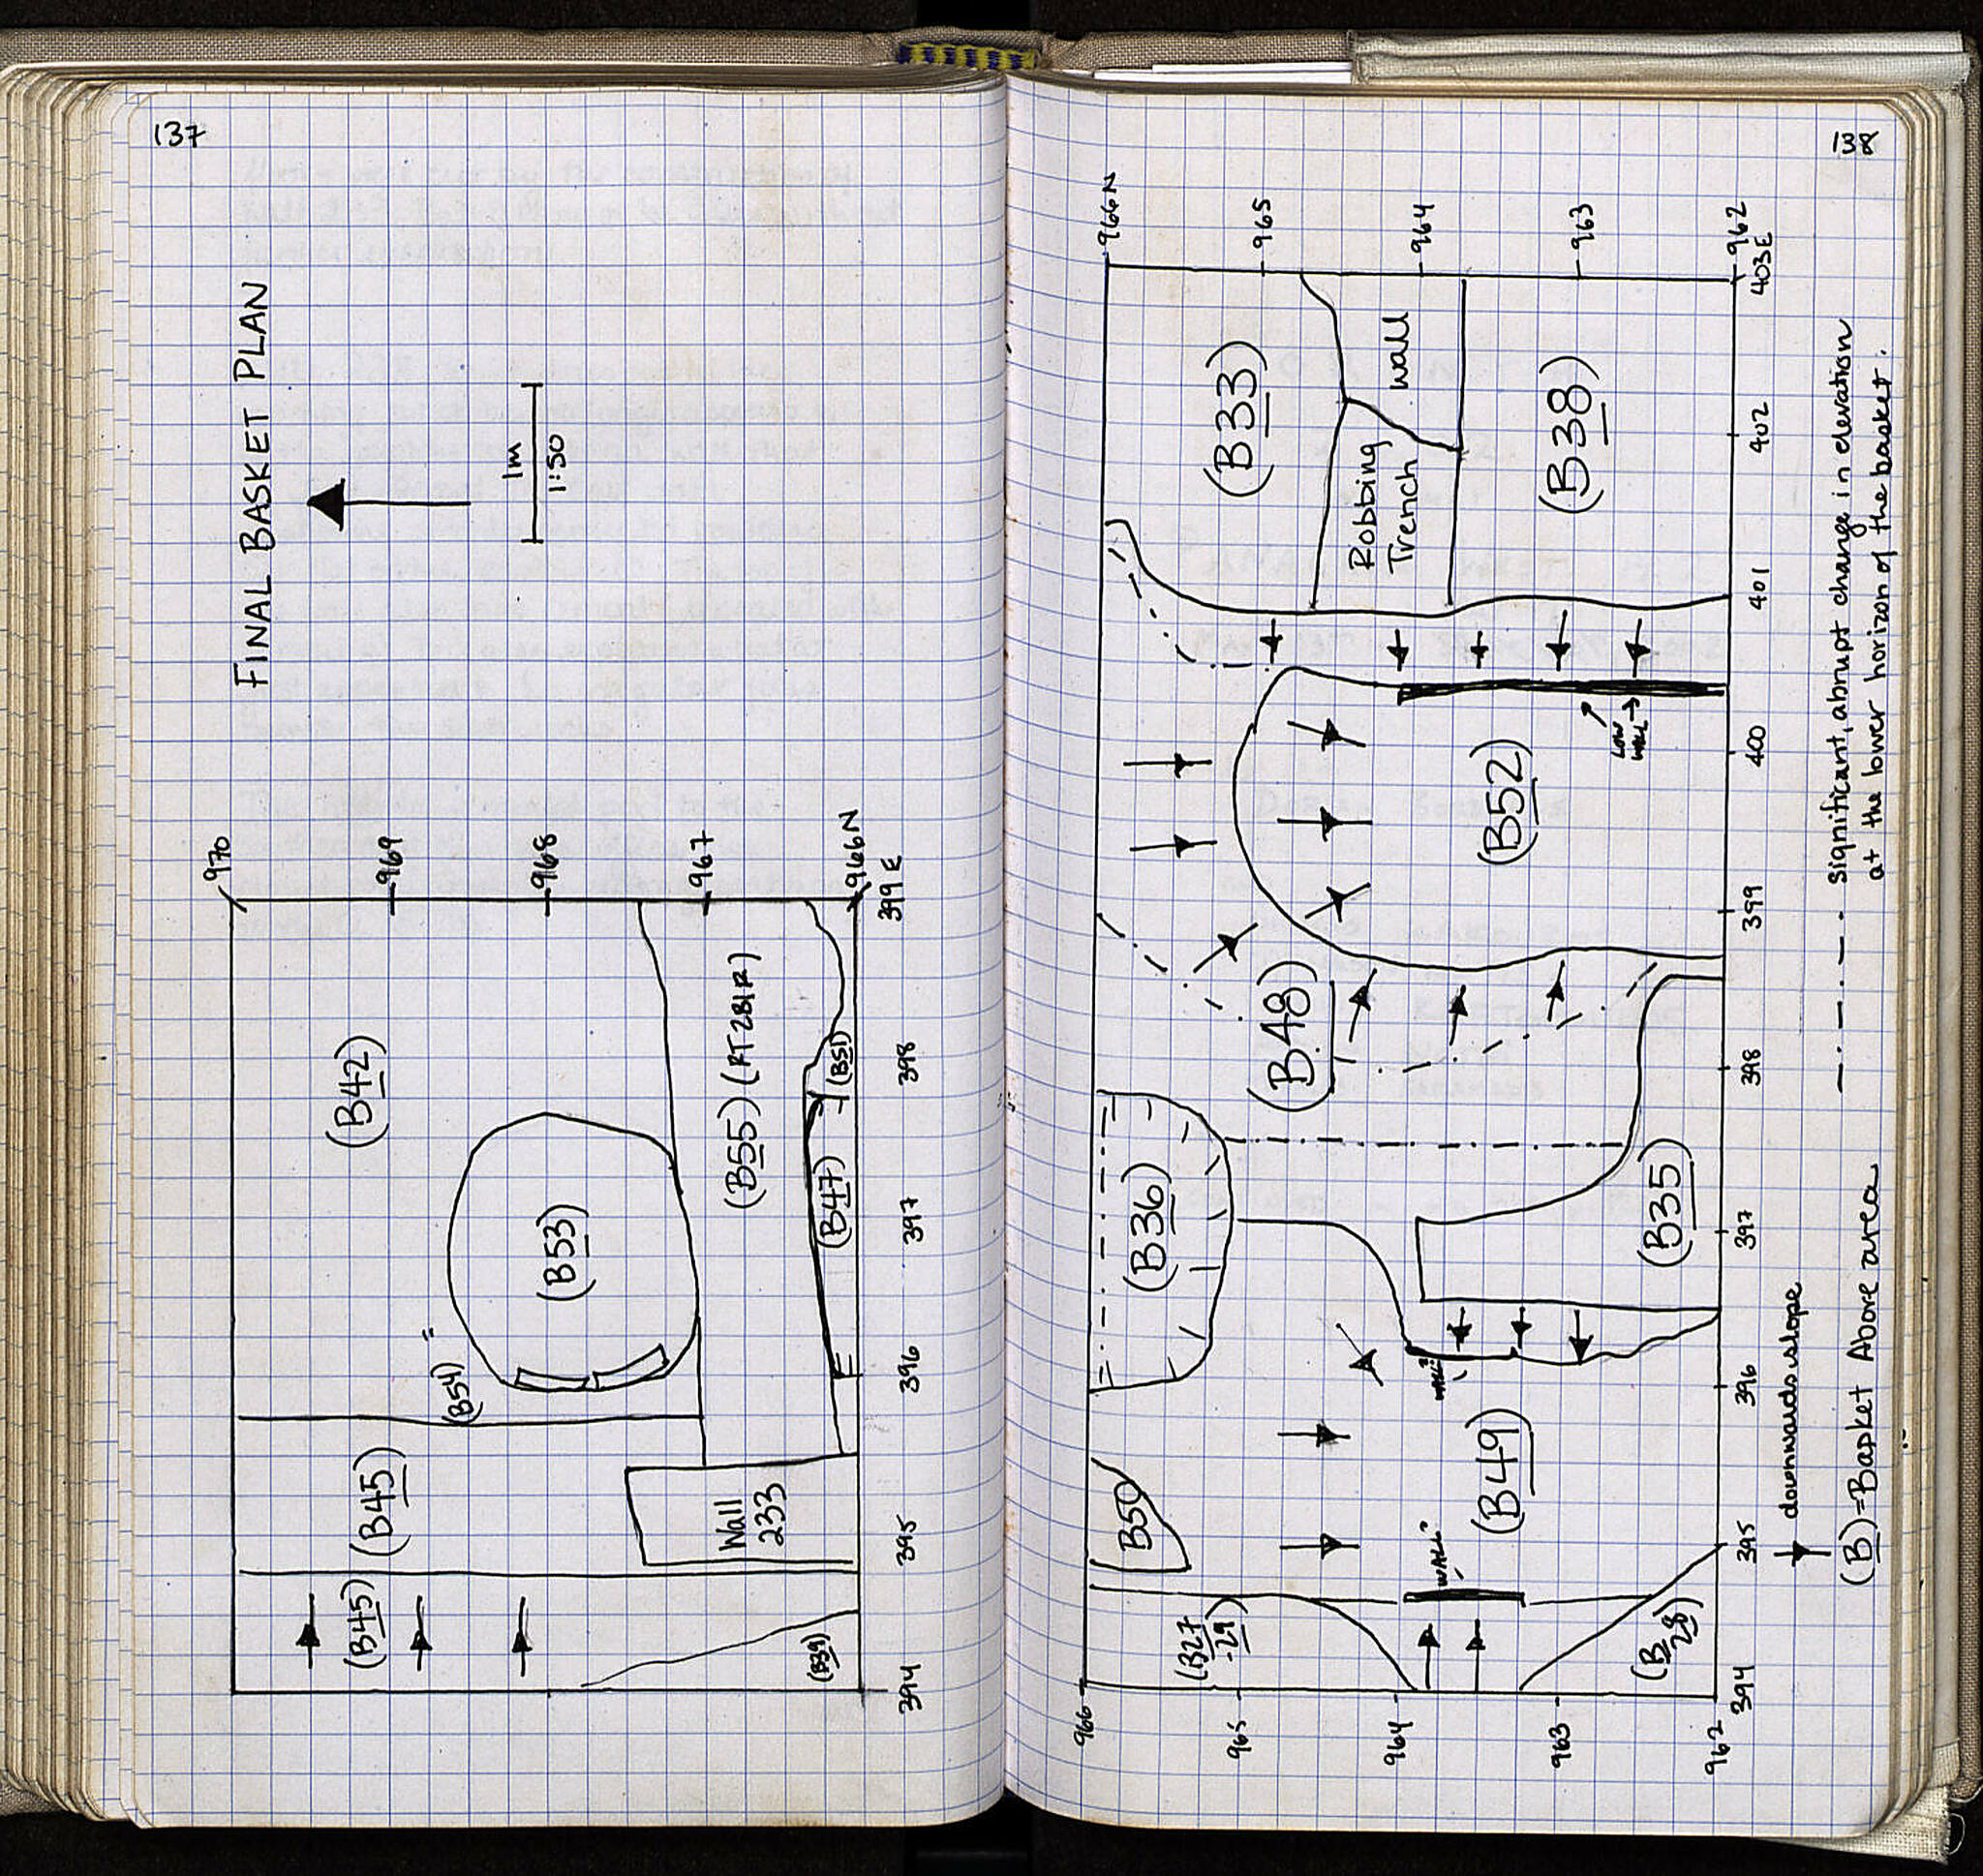 137
FINAL BASKET PLAN
1m
1:50
970
969
968
967
966N
399E
(B42)
(B53)
(B54)
(B45)
(B45)
(B55) (RT281R)
(B51)
(B47)
Wall
233
(B39)
394
395
396
397
398
138
966N
965
964
963
962
403E
(B33)
Robbing
Trench
wall
(B38)
(B52)
LOW
WALL
(B48)
(B36)
(B35)
WALL?
(B49)
B50
WALL?
(B27
-29)
(B
28)
966
965
964
963
962
394
395
396
397
398
399
400
401
402
significant, abrupt change in elevation
at the lower horizon of the basket.
downwards slope
(B)=Basket Above area